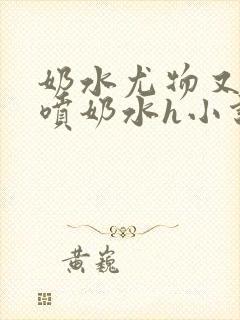 奶水尤物又
喷奶水h小
黄巍